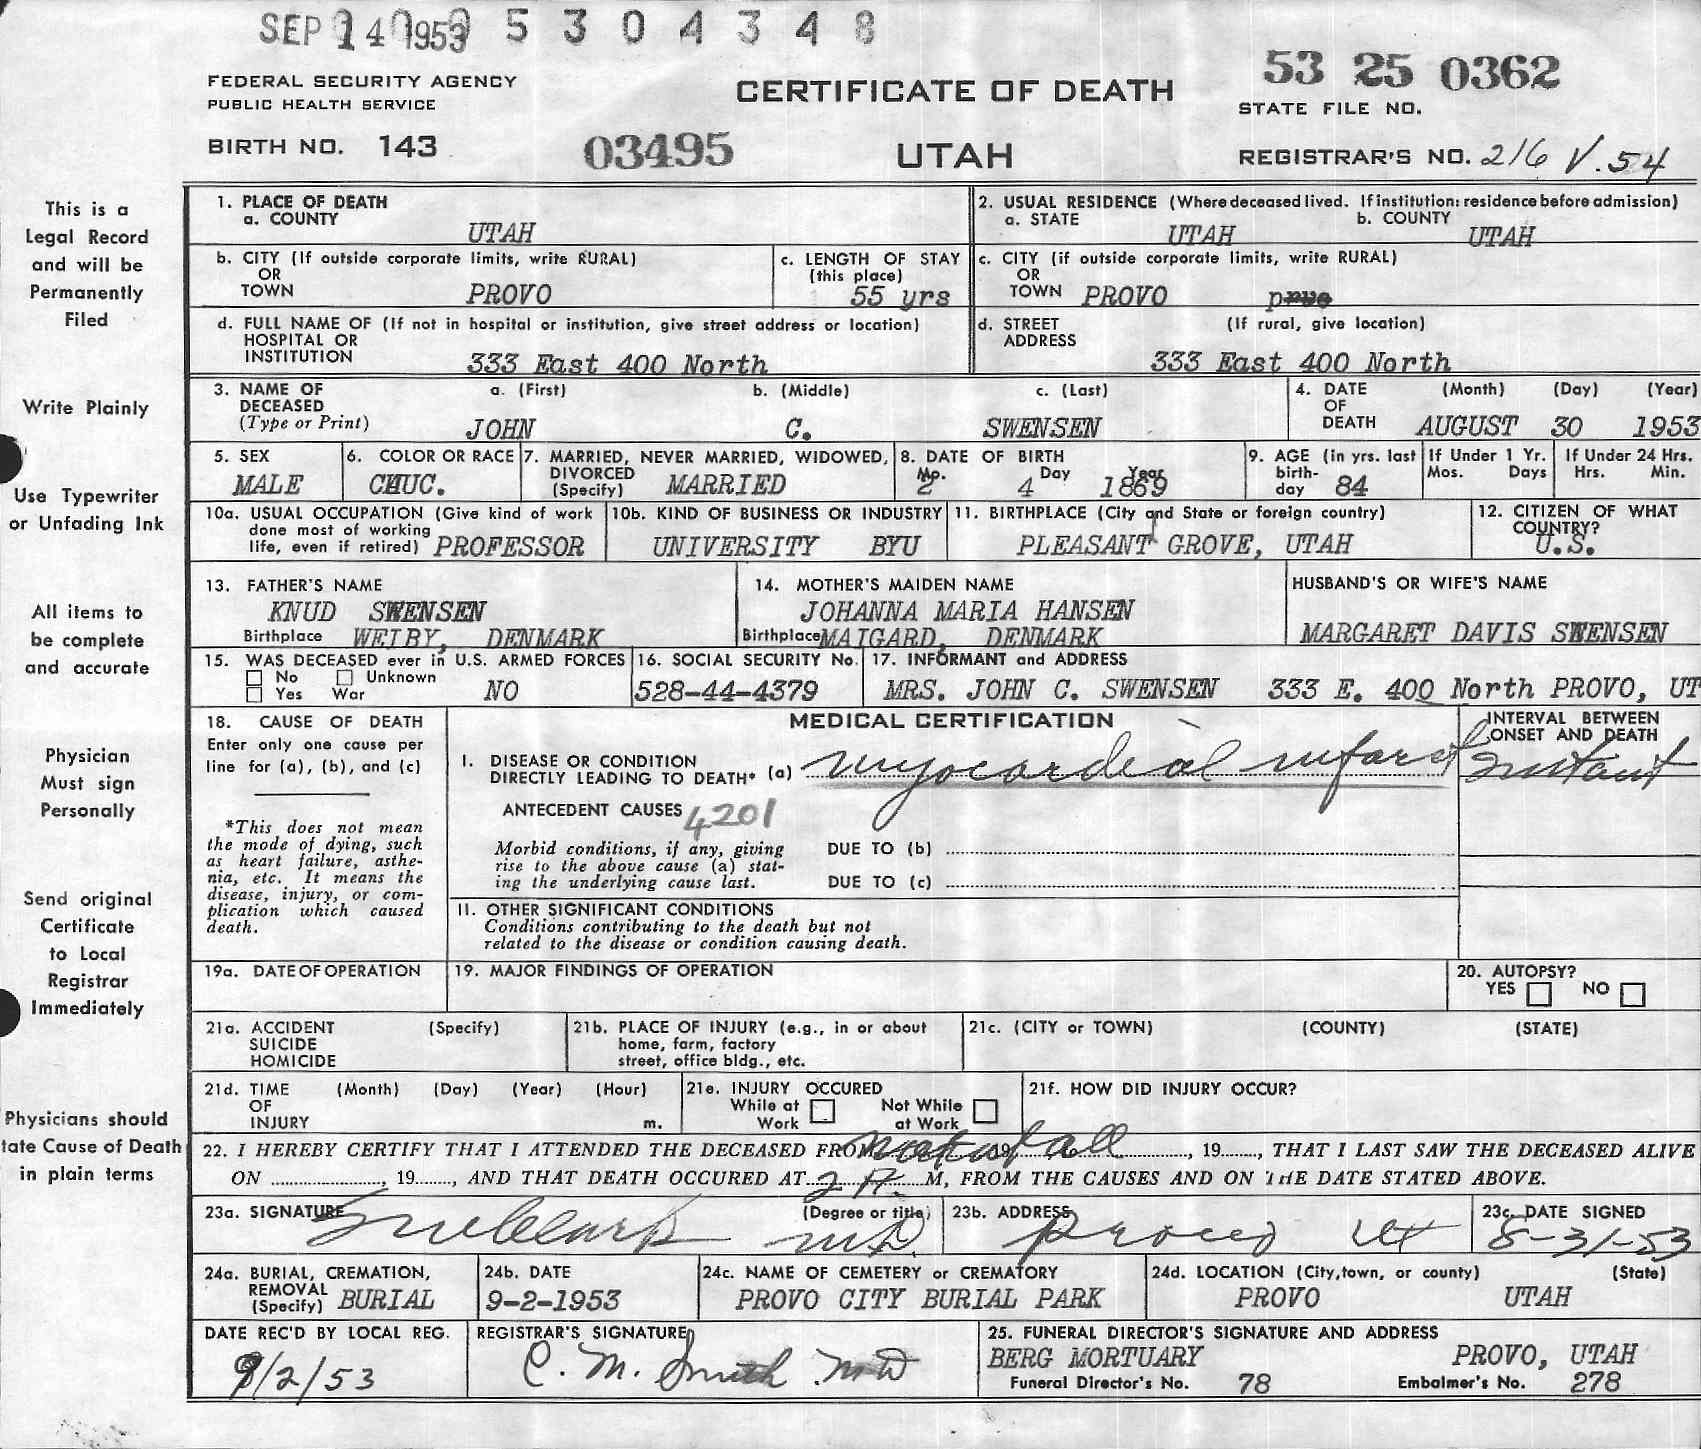 SEP 14 1953 5 3 0 4 3 4 8
53 25 0362
FEDERAL SECURITY AGENCY
PUBLIC HEALTH SERVICE
CERTIFICATE OF DEATH
STATE FILE NO.
BIRTH NO. 143
03495
UTAH
REGISTRAR'S NO. 216 V.54
This is a
Legal Record
and will be
Permanently
Filed
Write Plainly
Use Typewriter
or Unfading Ink
All items to
be complete
and accurate
Physician
Must sign
Personally
Send original
Certificate
to Local
Registrar
Immediately
Physicians should
tate Cause of Death
in plain terms
1. PLACE OF DEATH
a. COUNTY
UTAH
2. USUAL RESIDENCE (Where deceased lived. If institution: residence before admission)
a. STATE b. COUNTY
UTAH UTAH
b. CITY (If outside corporate limits, write RURAL)
OR
TOWN PROVO
c. LENGTH OF STAY
(this place)
55 yrs
c. CITY (if outside corporate limits, write RURAL)
OR
TOWN PROVO
d. FULL NAME OF (If not in hospital or institution, give street address or location)
HOSPITAL OR
INSTITUTION 333 East 400 North
d. STREET (If rural, give location)
ADDRESS
333 East 400 North
3. NAME OF a. (First) b. (Middle) c. (Last)
DECEASED
(Type or Print) JOHN C. SWENSEN
4. DATE (Month) (Day) (Year)
OF
DEATH AUGUST 30 1953
5. SEX
MALE
6. COLOR OR RACE
CHUC.
7. MARRIED, NEVER MARRIED, WIDOWED,
DIVORCED
(Specify) MARRIED
8. DATE OF BIRTH
Mo. Day Year
2 4 1869
9. AGE (in yrs. last
birth-
day 84
If Under 1 Yr.
Mos. Days
If Under 24 Hrs.
Hrs. Min.
10a. USUAL OCCUPATION (Give kind of work
done most of working
life, even if retired) PROFESSOR
10b. KIND OF BUSINESS OR INDUSTRY
UNIVERSITY BYU
11. BIRTHPLACE (City and State or foreign country)
PLEASANT GROVE, UTAH
12. CITIZEN OF WHAT
COUNTRY?
U.S.
13. FATHER'S NAME
KNUD SWENSEN
Birthplace WEIBY, DENMARK
14. MOTHER'S MAIDEN NAME
JOHANNA MARIA HANSEN
Birthplace MAIGARD, DENMARK
HUSBAND'S OR WIFE'S NAME
MARGARET DAVIS SWENSEN
15. WAS DECEASED ever in U.S. ARMED FORCES
No Unknown
Yes War NO
16. SOCIAL SECURITY No.
528-44-4379
17. INFORMANT and ADDRESS
MRS. JOHN C. SWENSEN 333 E. 400 North PROVO, UT
18. CAUSE OF DEATH
Enter only one cause per
line for (a), (b), and (c)
*This does not mean
the mode of dying, such
as heart failure, asthe-
nia, etc. It means the
disease, injury, or com-
plication which caused
death.
MEDICAL CERTIFICATION
I. DISEASE OR CONDITION
DIRECTLY LEADING TO DEATH* (a) myocardial infarct
INTERVAL BETWEEN
ONSET AND DEATH
Instant
ANTECEDENT CAUSES 4201
Morbid conditions, if any, giving
rise to the above cause (a) stat-
ing the underlying cause last.
DUE TO (b)
DUE TO (c)
II. OTHER SIGNIFICANT CONDITIONS
Conditions contributing to the death but not
related to the disease or condition causing death.
19a. DATE OF OPERATION
19. MAJOR FINDINGS OF OPERATION
20. AUTOPSY?
YES NO
21a. ACCIDENT (Specify)
SUICIDE
HOMICIDE
21b. PLACE OF INJURY (e.g., in or about
home, farm, factory
street, office bldg., etc.
21c. (CITY or TOWN) (COUNTY) (STATE)
21d. TIME (Month) (Day) (Year) (Hour)
OF
INJURY m.
21e. INJURY OCCURED
While at Work
Not While at Work
21f. HOW DID INJURY OCCUR?
22. I HEREBY CERTIFY THAT I ATTENDED THE DECEASED FROM not at all, 19, THAT I LAST SAW THE DECEASED ALIVE
ON, 19, AND THAT DEATH OCCURED AT 2 A. M, FROM THE CAUSES AND ON THE DATE STATED ABOVE.
23a. SIGNATURE (Degree or title)
Clark MD
23b. ADDRESS
Provo Ut
23c. DATE SIGNED
8-31-53
24a. BURIAL, CREMATION,
REMOVAL
(Specify) BURIAL
24b. DATE
9-2-1953
24c. NAME OF CEMETERY or CREMATORY
PROVO CITY BURIAL PARK
24d. LOCATION (City, town, or county) (State)
PROVO UTAH
DATE REC'D BY LOCAL REG.
9/2/53
REGISTRAR'S SIGNATURE
C. M. Smith MD
25. FUNERAL DIRECTOR'S SIGNATURE AND ADDRESS
BERG MORTUARY PROVO, UTAH
Funeral Director's No. 78 Embalmer's No. 278